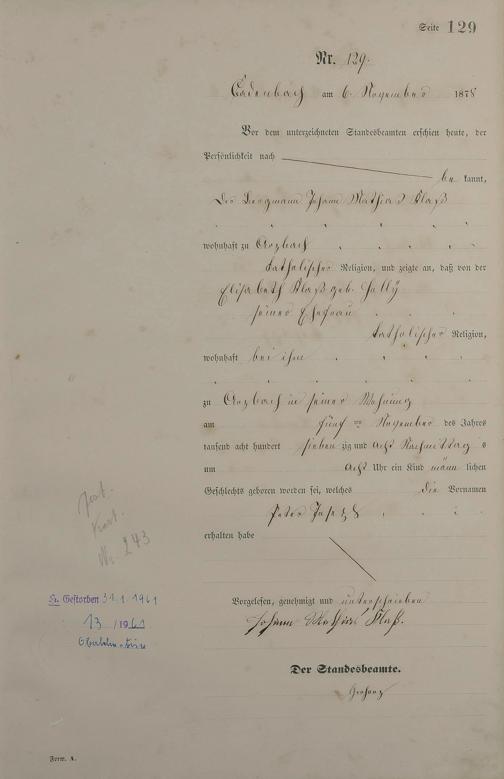 Seite 129
Nr. 129.
Cadenbach am 6. November 1878
Vor dem unterzeichneten Standesbeamten erschien heute, der
Persönlichkeit nach
be kannt,
Der Bergmann Johann Mathias Klaß
wohnhaft zu Arzbach
katholischer Religion, und zeigte an, daß von der
Elisabeth Klaß geb.
seiner Ehefrau
katholischer Religion,
wohnhaft bei ihm
zu Arzbach in seiner Wohnung
am fünften November des Jahres
tausend acht hundert sieben zig und acht Nachmittag s
um acht Uhr ein Kind männ lichen
Geschlechts geboren worden sei, welches die Vornamen
Peter Joseph
erhalten habe
Nr. 243
Gestorben 31.1.1961
13/1961
Vorgelesen, genehmigt und unterschrieben
Johann Mathias Klaß.
Der Standesbeamte.
Form. A.